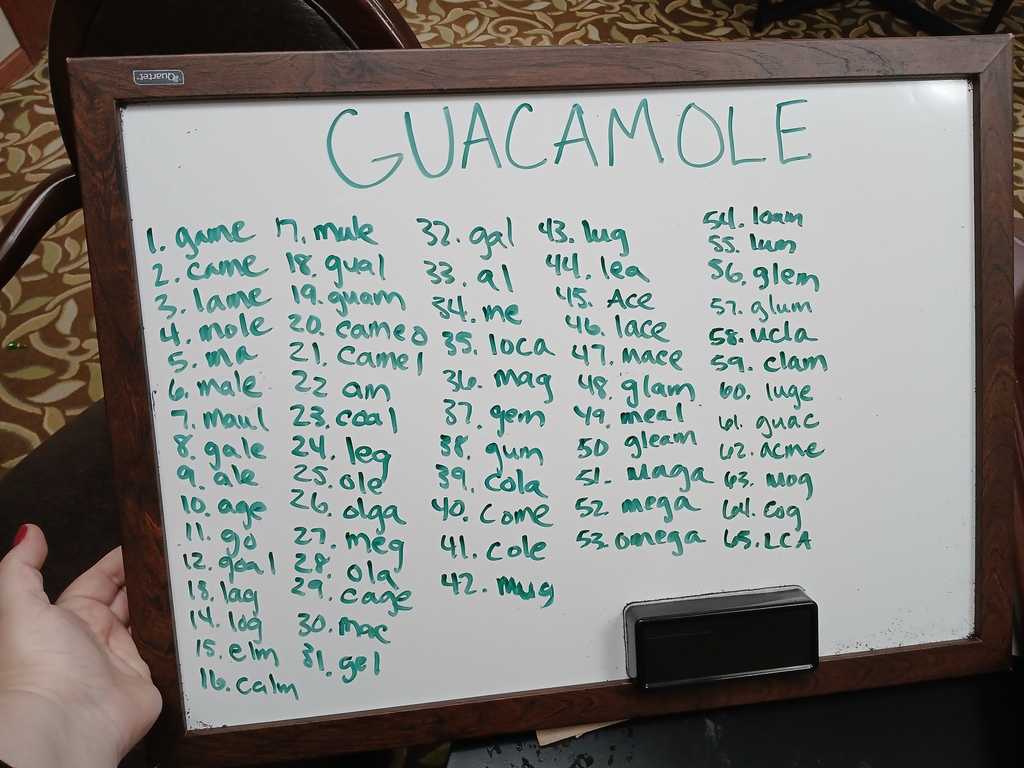 Quartet
GUACAMOLE
1. game
2. came
3. lame
4. mole
5. ma
6. male
7. Maul
8. gale
9. ale
10. age
11. go
12. goal
13. lag
14. log
15. elm
16. calm
17. mule
18. gual
19. guam
20. cameo
21. camel
22 am
23. coal
24. leg
25. ole
26. olga
27. meg
28. ola
29. cage
30. mac
31. gel
32. gal
33. al
34. me
35. loca
36. mag
37. gem
38. gum
39. cola
40. come
41. cole
42. mug
43. lug
44. lea
45. Ace
46. lace
47. mace
48. glam
49. meal
50 gleam
51. Maga
52. mega
53. omega
54. loam
55. lum
56. glem
57. glum
58. ucla
59. clam
60. luge
61. guac
62. acme
63. mog
64. cog
65. LCA